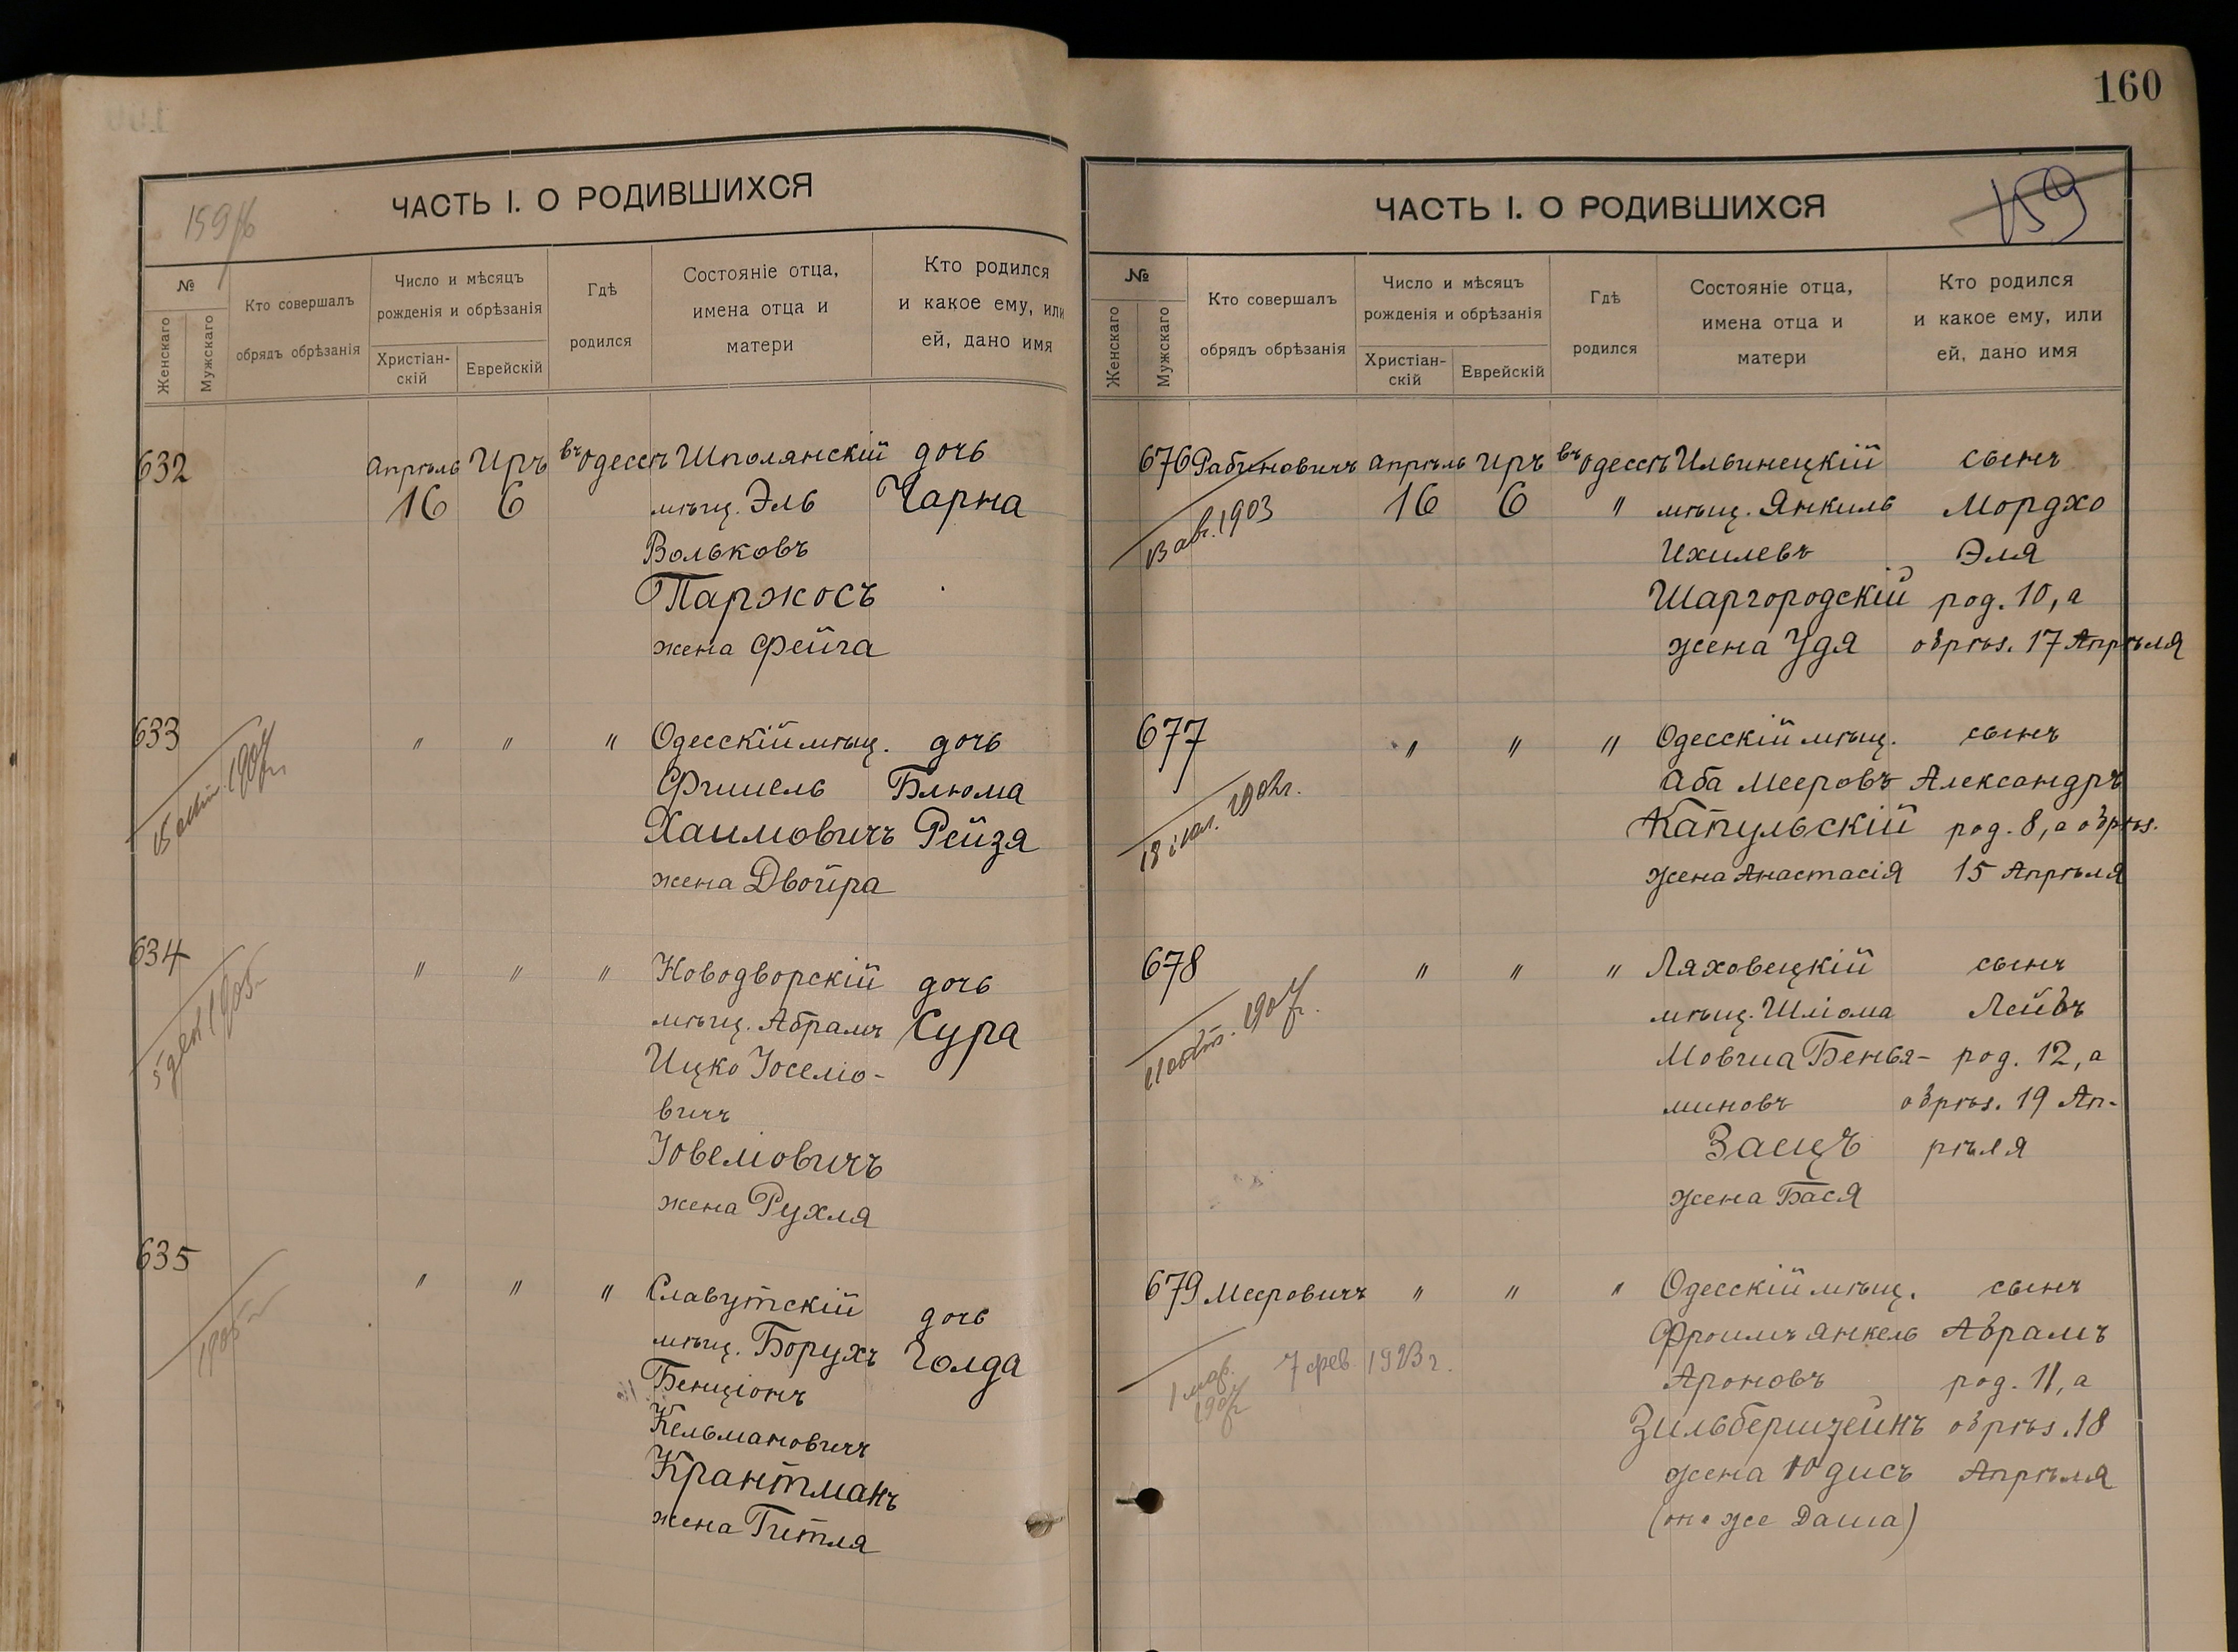 ЧАСТЬ I. О РОДИВШИХСЯ
№
Женскаго
Мужскаго
Кто совершалъ
обрядъ обрѣзанія
Число и мѣсяцъ
рожденія и обрѣзанія
Христіан-
скій
Еврейскій
Гдѣ
родился
Состояніе отца,
имена отца и
матери
Кто родился
и какое ему, или
ей, дано имя
632 Апрѣль Иръ въ Одессѣ Шполянскій дочь
16 6 мѣщ. Эль Чарна
Вольковъ
Паржосъ
жена Фейга
633 " " " Одесскій мѣщ. дочь
Фишель Блюма
Хаимовичъ Рейзя
жена Двойра
634 " " " Новодворскій дочь
мѣщ. Абрамъ Сура
Ицко Іоселіо-
вичъ
Іовеліовичъ
жена Рухля
5 дек 1905
635 " " " Славутскій дочь
мѣщ. Борухъ Голда
Бенціонъ
Кельмановичъ
Крантманъ
жена Гитля
160
ЧАСТЬ I. О РОДИВШИХСЯ
159
№
Женскаго
Мужскаго
Кто совершалъ
обрядъ обрѣзанія
Число и мѣсяцъ
рожденія и обрѣзанія
Христіан-
скій
Еврейскій
Гдѣ
родился
Состояніе отца,
имена отца и
матери
Кто родился
и какое ему, или
ей, дано имя
676 Рабиновичъ Апрѣль Иръ въ Одессѣ Ильинецкій сынъ
16 6 " мѣщ. Янкиль Мордхо
Ихилевъ Эля
Шаргородскій род. 10, а
жена Удя обрѣз. 17 Апрѣля
13 авг. 1903
677 " " " Одесскій мѣщ. сынъ
Аба Мееровъ Александръ
Капульскій род. 8, а обрѣз.
жена Анастасія 15 Апрѣля
678 " " " Ляховецкій сынъ
мѣщ. Шліома Лейбъ
Мовша Бенья- род. 12, а
миновъ обрѣз. 19 Ап-
Заецъ рѣля
жена Бася
679 Мееровичъ " " " Одесскій мѣщ. сынъ
Фроимъ Янкель Абрамъ
Ароновъ род. 11, а
Зильберштейнъ обрѣз. 18
жена Юдисъ Апрѣля
(она же Даша)
7 фев 1923 г.